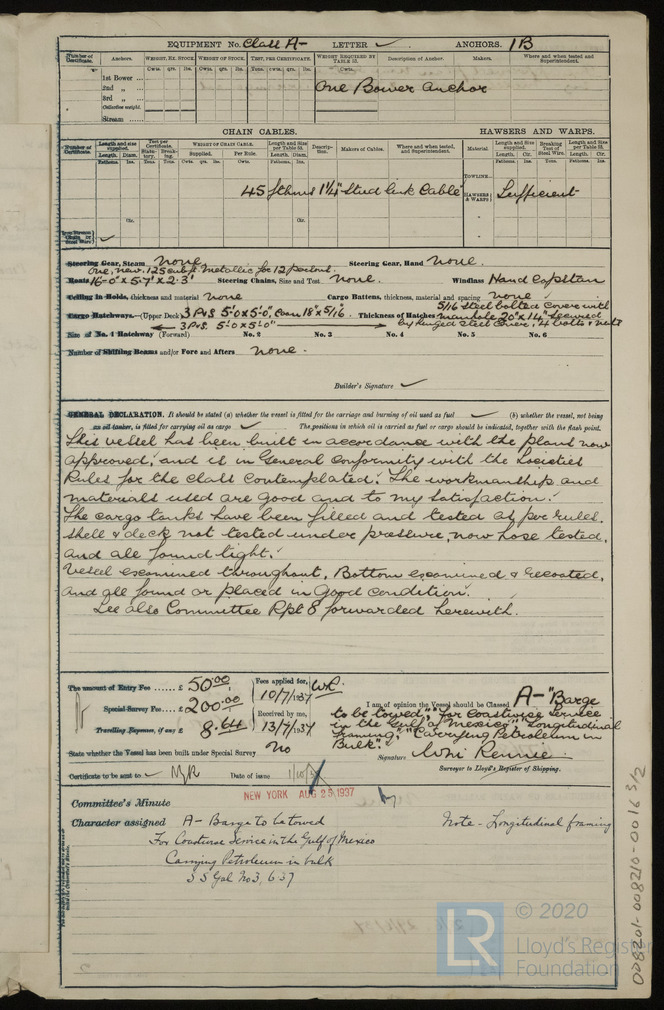 EQUIPMENT No. Class A- LETTER ✓ ANCHORS. 1B
Number of Certificate. Anchors. WEIGHT, EX. STOCK. WEIGHT OF STOCK. TEST, PER CERTIFICATE. WEIGHT REQUIRED BY TABLE 53. Description of Anchor. Makers. Where and when tested and Superintendent.
Cwts. qrs. lbs. Cwts. qrs. lbs. Tons. cwts. qrs. lbs. Cwts.
1st Bower ...
2nd „ ... One Bower Anchor
3rd „ ...
Collective weight.
Stream ...
CHAIN CABLES. HAWSERS AND WARPS.
Number of Certificate. Length and size supplied. Test per Certificate. WEIGHT OF CHAIN CABLE. Length and Size per Table 53. Description. Makers of Cables. Where and when tested, and Superintendent. Material. Length and Size supplied. Breaking Test of Steel Wire. Length and Size per Table 53.
Length. Diam. Statutory. Breaking. Supplied. Per Rule. Length. Diam. Length. Cir. Length. Cir.
Fathoms. Ins. Tons. Tons. Cwts. qrs. lbs. Cwts. Fathoms. Ins. Fathoms. Ins. Tons. Fathoms. Ins.
TOWLINE
45 fthms 1¼" Stud link Cable HAWSERS & WARPS Sufficient
Cir. Cir.
✓
Steering Gear, Steam None Steering Gear, Hand None.
One, new. 125 cub ft. Metallic for 12 persons.
Boats 16'-0" x 5'-7" x 2'-3" Steering Chains, Size and Test None. Windlass Hand Capstan
Ceiling in Holds, thickness and material None Cargo Battens, thickness, material and spacing None.
5/16 Steel bolted cover with
Cargo Hatchways.—(Upper Deck) 3 P&S 5'-0 x 5'-0", Coam 18" x 5/16" Thickness of Hatches manhole 20" x 14" secured
3 P&S. 5'-0 x 5'-0" by hinged steel cover, 4 bolts & nuts
Size of No. 1 Hatchway (Forward) No. 2 No. 3 No. 4 No. 5 No. 6
Number of Shifting Beams and/or Fore and Afters None.
Builder's Signature ✓
GENERAL DECLARATION. It should be stated (a) whether the vessel is fitted for the carriage and burning of oil used as fuel ✓ (b) whether the vessel, not being
an oil tanker, is fitted for carrying oil as cargo ✓ The positions in which oil is carried as fuel or cargo should be indicated, together with the flash point.
This vessel has been built in accordance with the plans now
approved, and is in General Conformity with the Societies
Rules for the class Contemplated. The workmanship and
materials used are good and to my satisfaction.
The cargo tanks have been filled and tested as per rules.
shell & deck not tested under pressure, now hose tested,
and all found tight.
Vessel examined throughout, Bottom examined & recoated,
and all found or placed in Good condition.
See also Committee Rpt 8 forwarded herewith.
The amount of Entry Fee ... £ 50.00 Fees applied for, WR
10/7/1937
Special Survey Fee ... £ 200.00
Travelling Expenses, if any £ 8.44 Received by me, 13/7/1937
I am of opinion the Vessel should be Classed A- "Barge
to be towed," "For Coastwise Service
in the Gulf of Mexico" "Longitudinal
Framing," "Carrying Petroleum in
Bulk".
State whether the Vessel has been built under Special Survey No
Signature Wm Rennie
Surveyor to Lloyd's Register of Shipping.
Certificate to be sent to ✓ NYR Date of issue
NEW YORK AUG 25 1937
Committee's Minute
Character assigned A- Barge to be towed Note - Longitudinal framing
For Coastwise Service in the Gulf of Mexico
Carrying Petroleum in bulk
S S Gal No 3, 6.37
008201-008210-0016 3/2
LR
© 2020
Lloyd's Register
Foundation